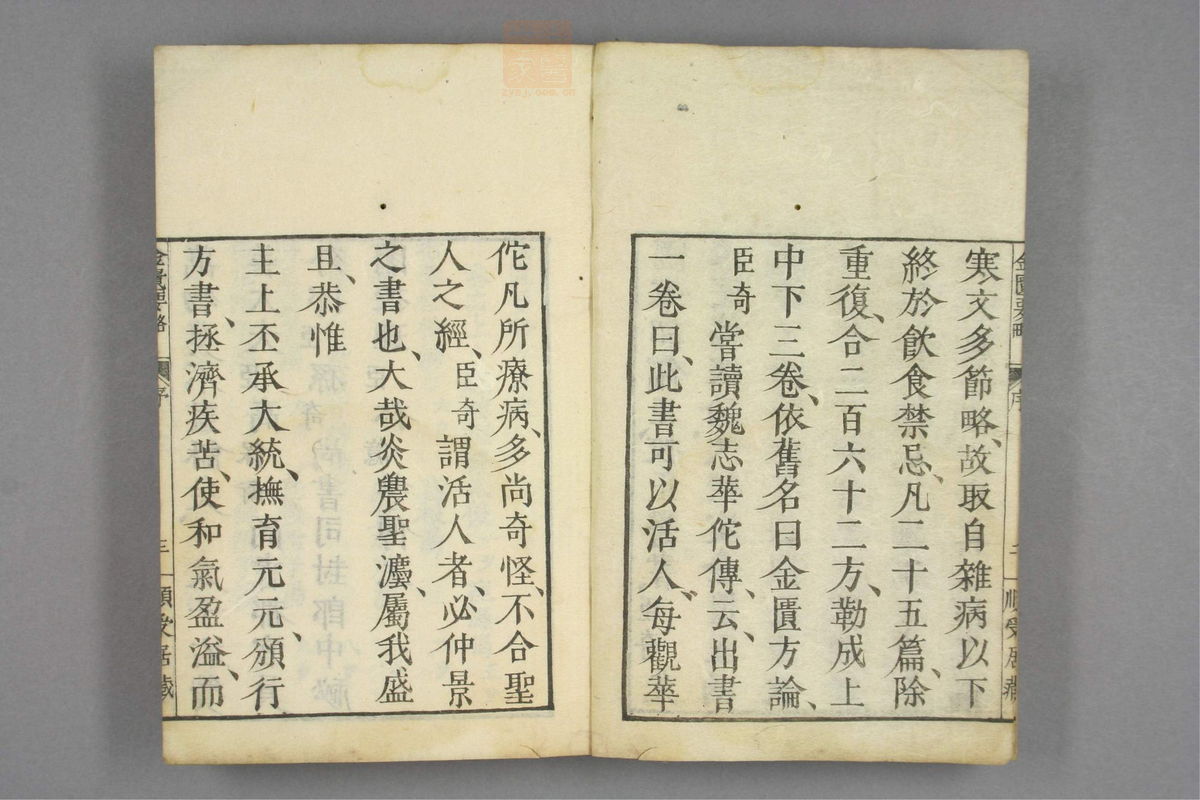 寒文多節略、故取自雜病以下
終於飲食禁忌、凡二十五篇、除
重復、合二百六十二方、勒成上
中下三卷、依舊名曰金匱方論、
臣奇嘗讀魏志華佗傳、云、出書
一卷曰、此書可以活人、每觀華
佗凡所療病、多尚奇怪、不合聖
人之經、臣奇謂活人者、必仲景
之書也、大哉炎農聖灋、屬我盛
旦、恭惟
主上丕承大統、撫育元元、頒行
方書、拯濟疾苦、使和氣盈溢、而
金匱要略 序 三 順受居藏
zysj.com.cn